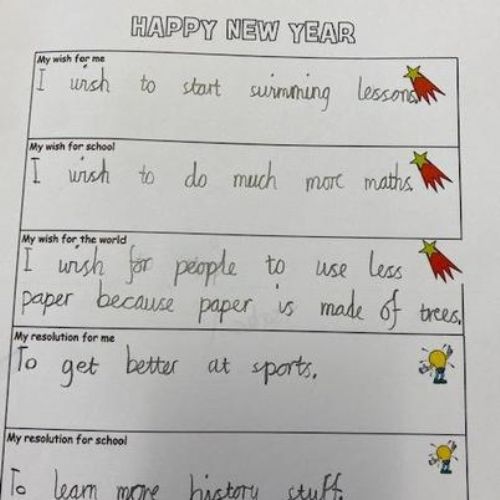 HAPPY NEW YEAR
My wish for me
I wish to start swimming lessons.
My wish for school
I wish to do much more maths.
My wish for the world
I wish for people to use less
paper because paper is made of trees.
My resolution for me
To get better at sports.
My resolution for school
To learn more history stuff.